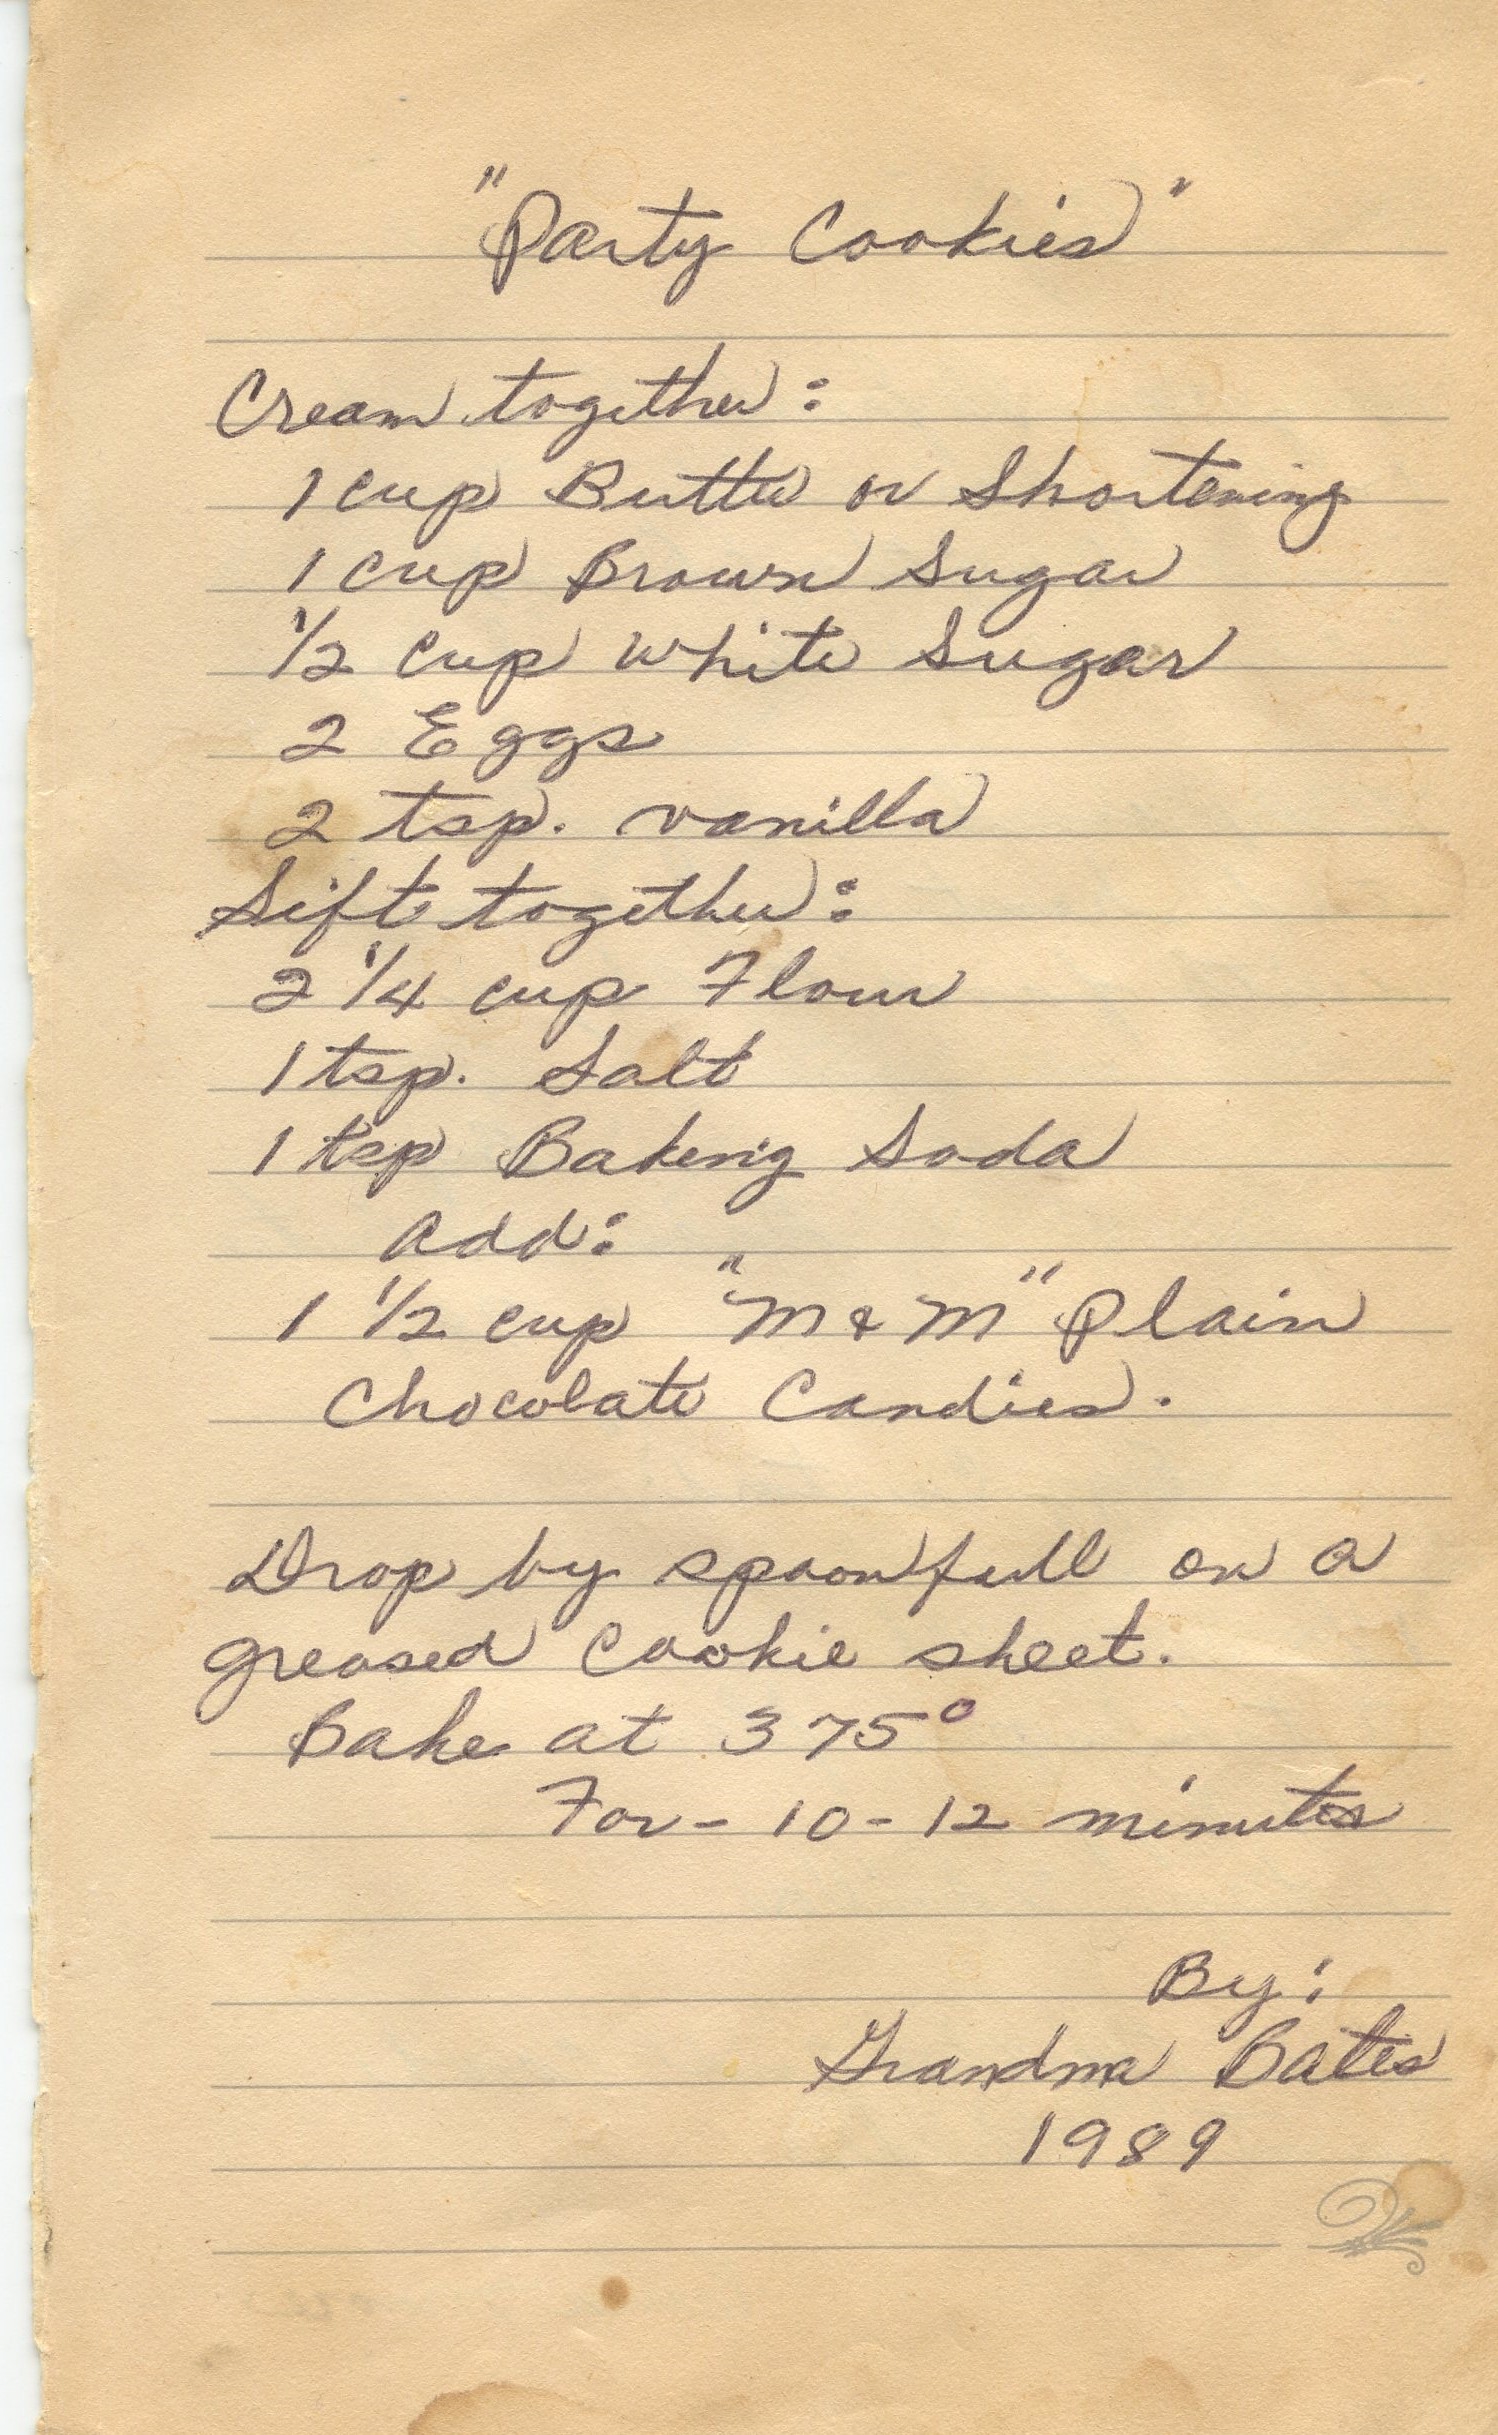 "Party Cookies"
Cream together:
1 cup Butter or Shortening
1 cup Brown Sugar
1/2 cup white Sugar
2 Eggs
2 tsp. vanilla
Sift together:
2 1/4 cup Flour
1 tsp. Salt
1 tsp Baking Soda
add:
1 1/2 cup "M & M" Plain
Chocolate Candies.
Drop by spoonfull on a
greased cookie sheet.
Bake at 375°
For - 10 - 12 minutes
By:
Grandma Bates
1989